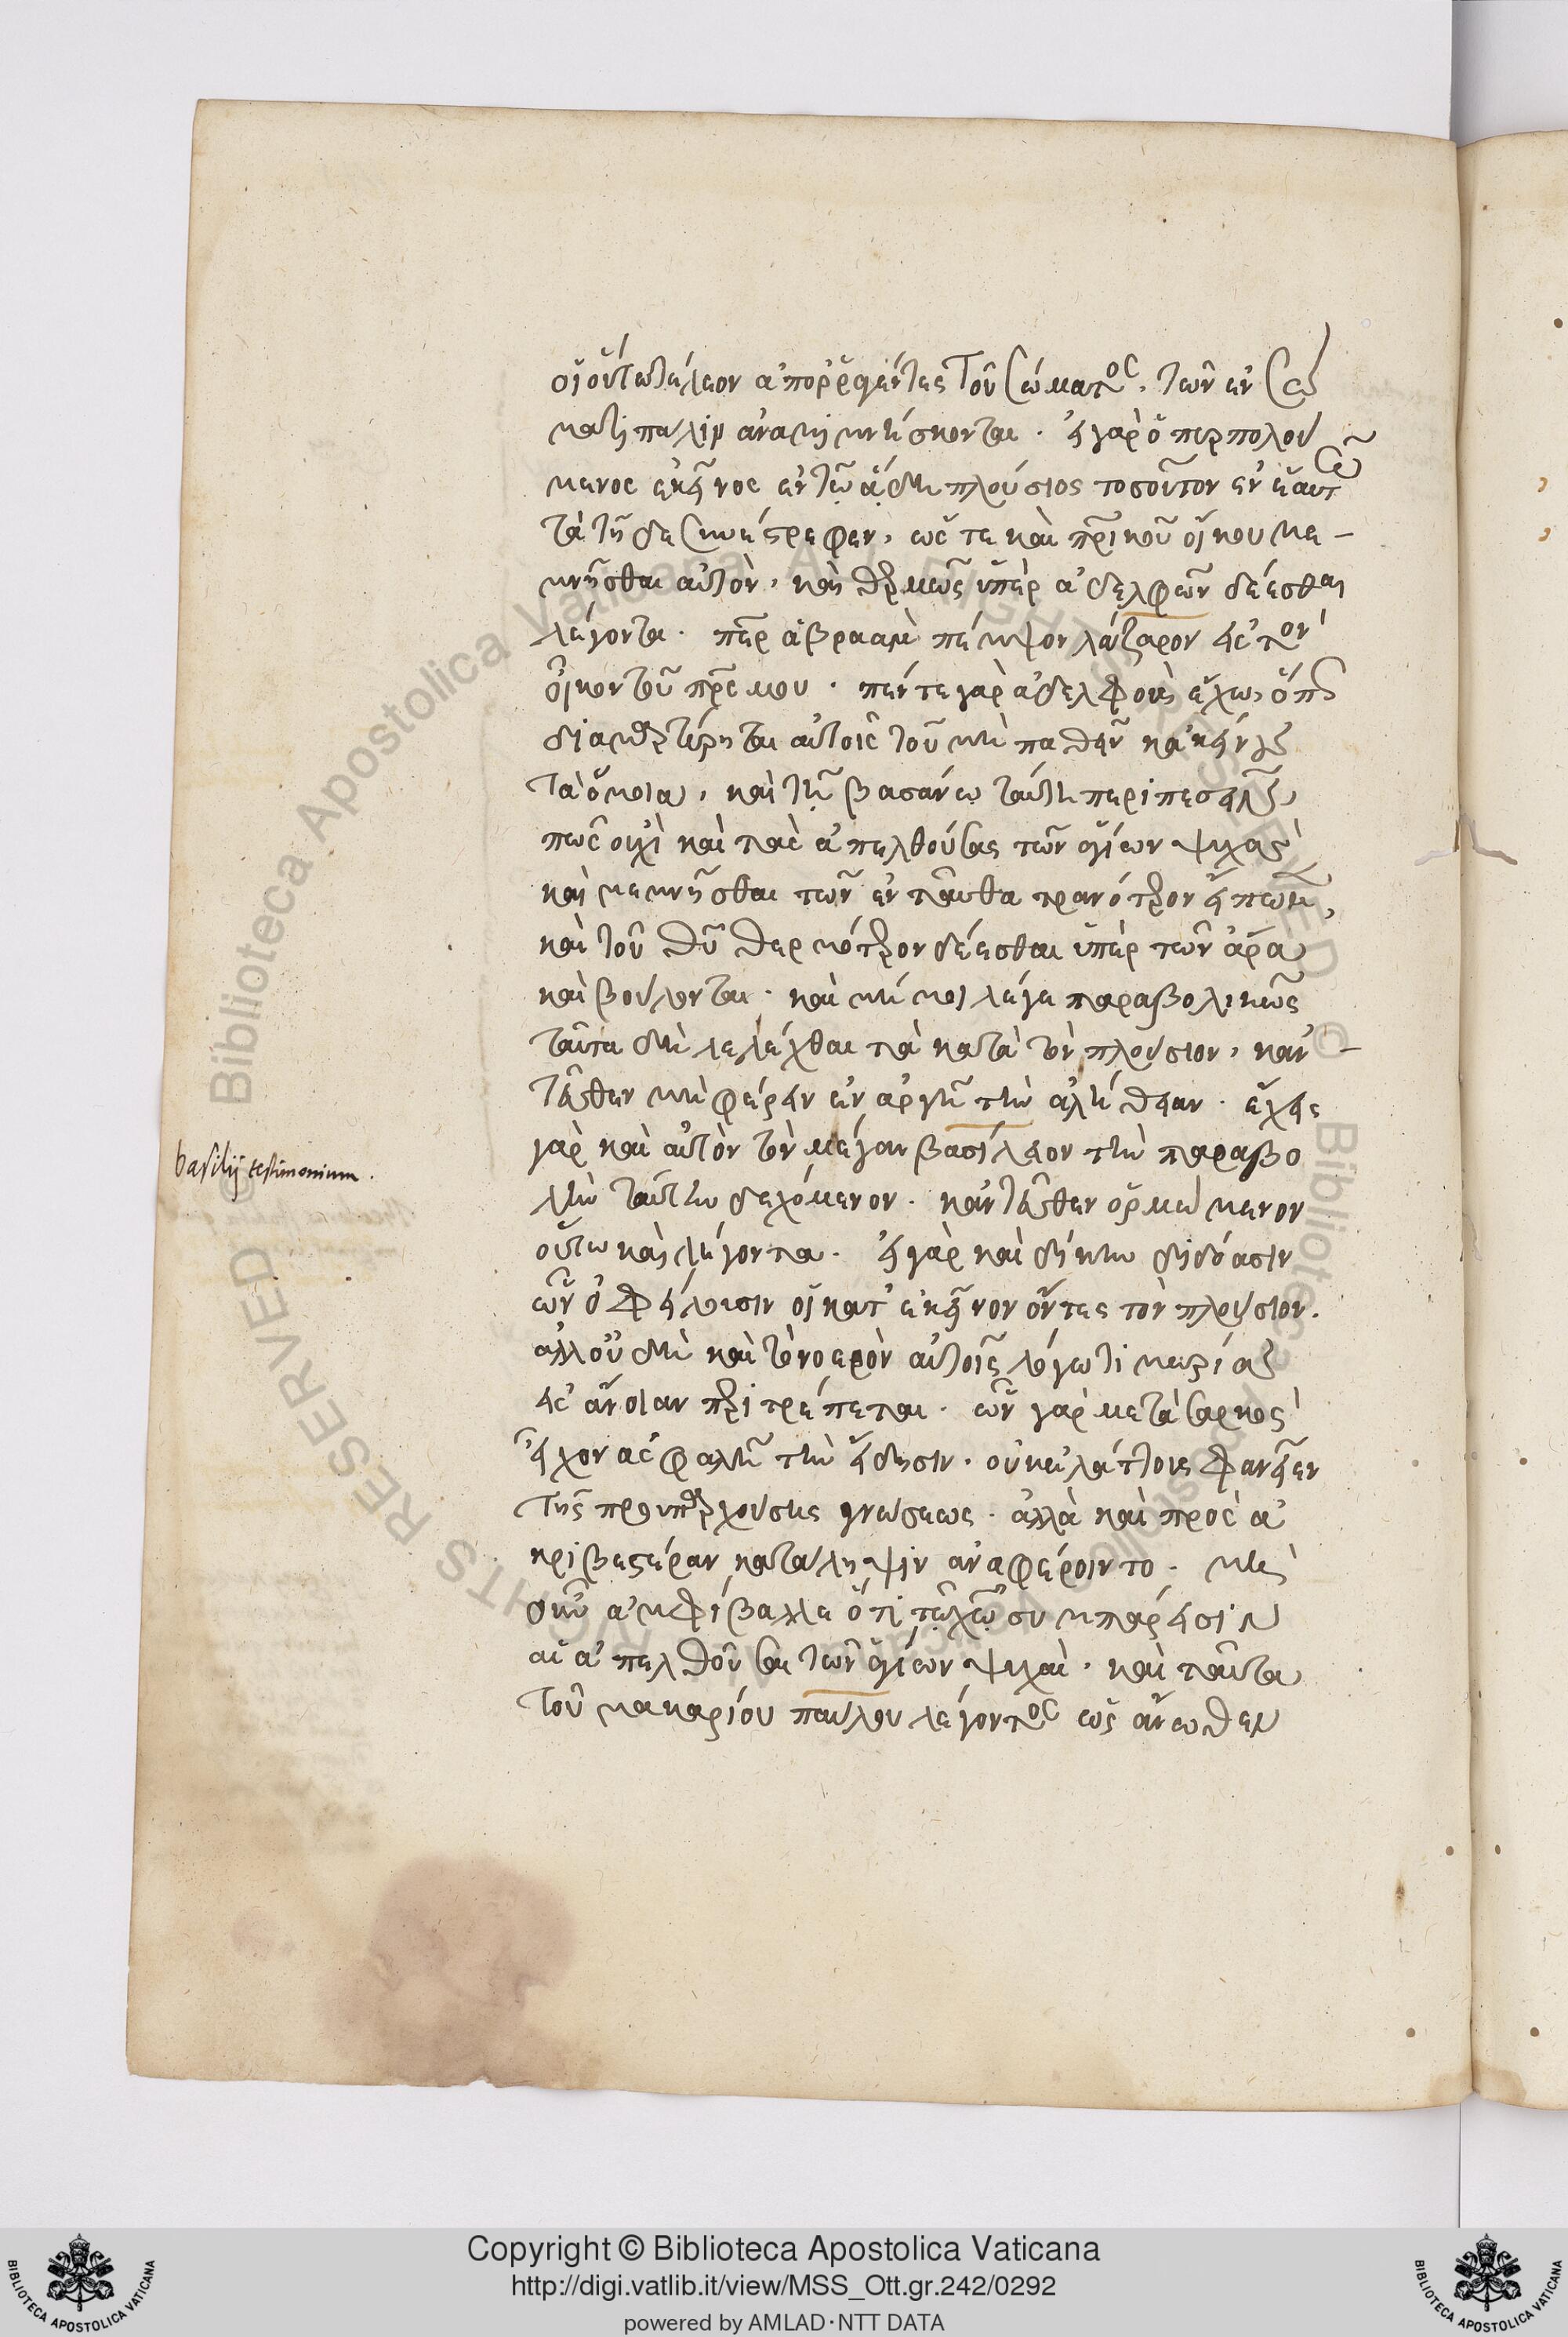 οἱ οὕτω τέλεον ἀπορραγέντες τοῦ σώματος, τῶν ἐν σώ
ματι πάλιν ἀναμιμνήσκονται. εἰ γὰρ ὁ περπολού
μενος ἐκεῖνος ἐν τῶ ἅδη πλούσιος τοσοῦτον ἐν ἑαυτῶ
τὰ τῆδε συνέστρεφεν, ὥς τε καὶ πατρικοῦ οἴκου με-
μνῆσθαι αὐτὸν, καὶ θερμῶς ὑπὲρ ἀδελφῶν δέεσθαι
λέγοντα. πάτερ ἀβραὰμ πέμψον λάζαρον εἰς τὸν
οἶκον τοῦ πρς μου. πέντε γὰρ ἀδελφοὺς ἔχω, ὅπως
διαμαρτύρηται αὐτοῖς τοῦ μὴ παθεῖν κἀκείνους
τὰ ὅμοια, καὶ τῆ βασάνω ταύτη περιπεσεῖν,
πῶς οὐχὶ καὶ τὰς ἀπελθούσας τῶν ἁγίων ψυχὰς
καὶ μεμνῆσθαι τῶν ἐνταῦθα τρανότερον εἴποιμι,
καὶ τοῦ θῦ θερμότερον δέεσθαι ὑπὲρ τῶν ἄρα
καὶ βούλονται. καὶ μή μοι λέγε παραβολικῶς
ταῦτα δὴ λελέχθαι τὰ κατὰ τὸν πλούσιον, κἀν-
τεῦθεν μὴ φέρειν ἐναργῆ τὴν ἀλήθειαν. ἔχεις
γὰρ καὶ αὐτὸν τὸν μέγαν βασίλειον τὴν παραβο
λὴν ταύτην δεχόμενον. κἀντεῦθεν ὁρμώμενον
οὕτω καὶ λέγοντα. εἰ γὰρ καὶ δίκην διδόασιν
ὧν ὀφείλουσιν οἱ κατ' ἐκεῖνον ὄντες τὸν πλούσιον.
ἀλλ' οὐ δὴ καὶ τὸ νοερὸν αὐτοῖς λόγω τιμωρίας
εἰς ἄνοιαν περιτρέπεται. ὧν γὰρ μετὰ σαρκὸς
εἶχον ἀσφαλῆ τὴν εἴδησιν. οὐκ ἐλάττους φανεῖεν
τῆς προυπαρχούσης γνώσεως. ἀλλὰ καὶ πρὸς ἀ
κριβεστέραν κατάληψιν ἀναφέροιντο. μὴ
οὖν ἀμφίβαλλε ὅτι συμπάρεισιν
αἱ ἀπελθοῦσαι τῶν ἁγίων ψυχαὶ. καὶ ταῦτα
τοῦ μακαρίου παύλου λέγοντος ὡς ἄνωθεν
basilij testimonium.
Copyright © Biblioteca Apostolica Vaticana
http://digi.vatlib.it/view/MSS_Ott.gr.242/0292
powered by AMLAD·NTT DATA